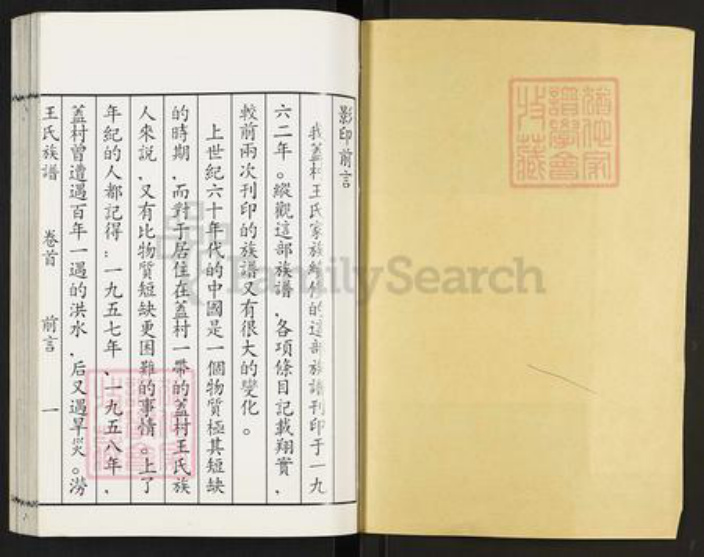 影印前言
我蓋村王氏家族續修的這部族譜刊印于一九
六二年。縱觀這部族譜，各項條目記載翔實，
較前兩次刊印的族譜又有很大的變化。
上世紀六十年代的中國是一個物質極其短缺
的時期，而對于居住在蓋村一帶的蓋村王氏族
人來說，又有比物質短缺更困難的事情。上了
年紀的人都記得：一九五七年、一九五八年，
蓋村曾遭遇百年一遇的洪水，后又遇旱災。澇
王氏族譜 卷首 前言 一
FamilySearch